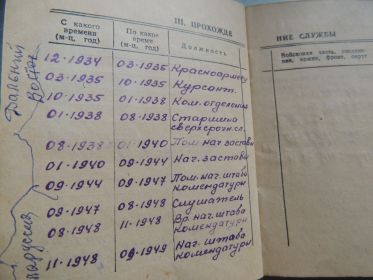 III. ПРОХОЖДЕ
НИЕ СЛУЖБЫ
С какого времени (м-ц, год)
По какое время (м-ц, год)
Должность
Войсковая часть,
ния, армия, фронт, округ
Дальний Восток
12-1934 03-1935 Красноармеец
03-1935 10-1935 Курсант.
10-1935 01-1938 Ком. отделения
01-1938 08-1938 Старшина
сверхсрочн сл.
08-1938 01-1940 Пом. нач заставы
01-1940 09-1944 Нач. заставы
09-1944 09-1947 Пом. нач. штаба
комендатуры
09-1947 08-1948 Слушатель
08-1948 11-1948 Вр. нач. штаба
комендатуры
11-1948 09-1949 Нач. штаба
комендатуры